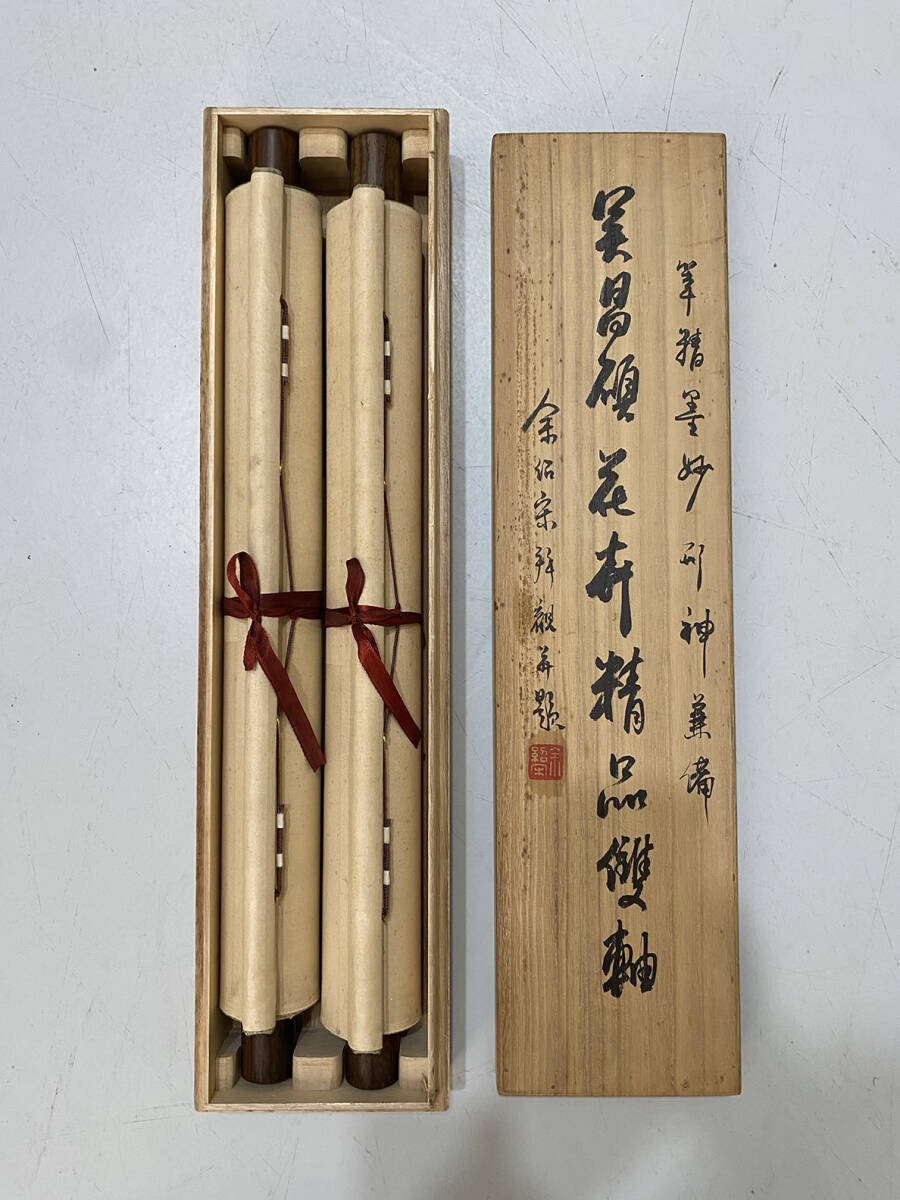 筆精墨妙形神兼備
吴昌碩花卉精品雙軸
余绍宋拜觀并題